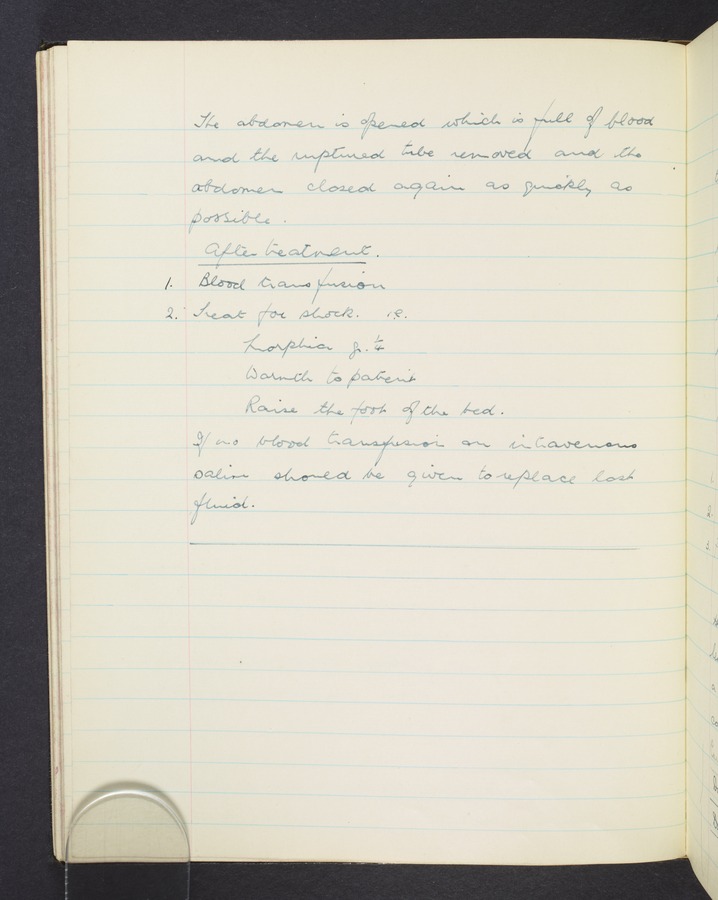 The abdomen is opened which is full of blood
and the ruptured tube removed and the
abdomen closed again as quickly as
possible.
After treatment.
1. Blood transfusion
2. Treat for shock. i.e.
Morphia gr. ¼
Warmth to patient
Raise the foot of the bed.
If no blood transfusion an intravenous
saline should be given to replace lost
fluid.